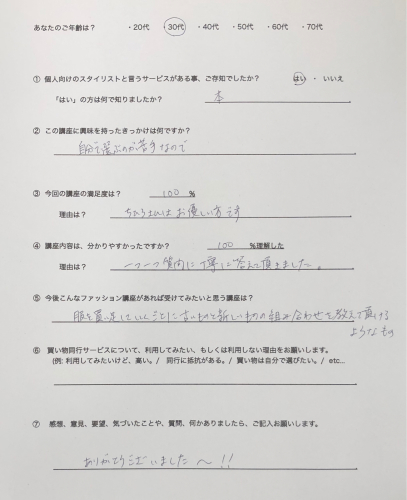 あなたのご年齢は? ・20代 ・30代 ・40代 ・50代 ・60代 ・70代
① 個人向けのスタイリストと言うサービスがある事、ご存知でしたか? はい ・ いいえ
「はい」の方は何で知りましたか? 本
② この講座に興味を持ったきっかけは何ですか?
自分で選ぶのが苦手なので
③ 今回の講座の満足度は? 100 %
理由は? はお優しい方です
④ 講座内容は、分かりやすかったですか? 100 %理解した
理由は? 一つ一つ質問に丁寧に答えて頂きました。
⑤ 今後こんなファッション講座があれば受けてみたいと思う講座は?
服を買い足していくごとに古いものと新しいものの組み合わせを教えて頂ける
ようなもの
⑥ 買い物同行サービスについて、利用してみたい、もしくは利用しない理由をお願いします。
(例: 利用してみたいけど、高い。/ 同行に抵抗がある。/ 買い物は自分で選びたい。/ etc...
⑦ 感想、意見、要望、気づいたことや、質問、何かありましたら、ご記入お願いします。
ありがとうございました〜!!